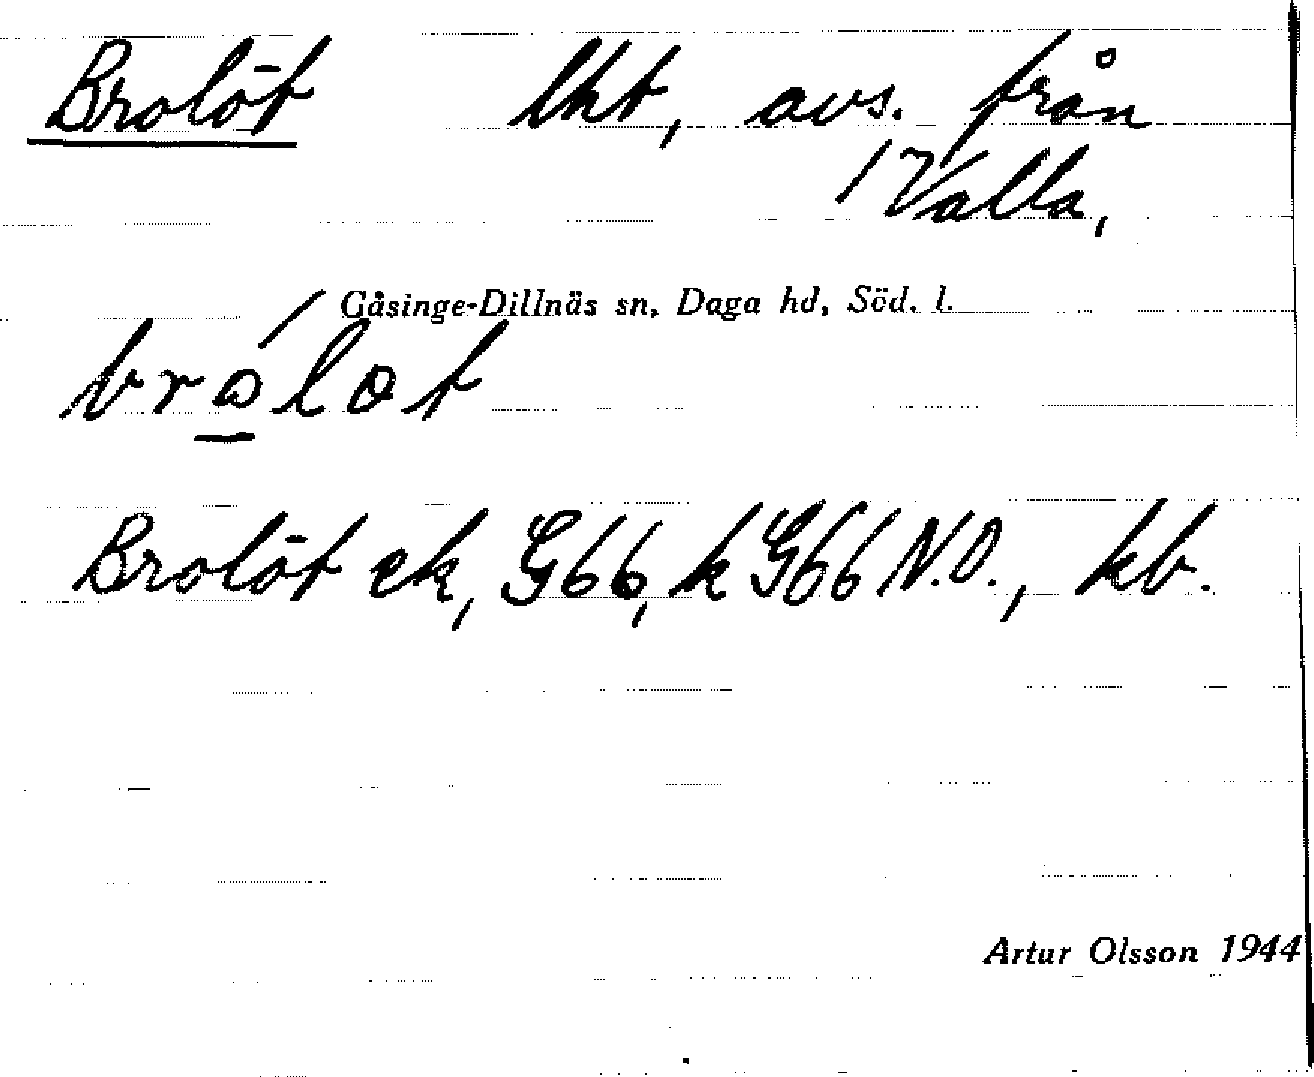 Brolöt lht, avs. från
/Valla,
Gåsinge-Dillnäs sn, Daga hd, Söd. l.
Brolöt ek, G66, k G66 N.O., kb.
Artur Olsson 1944